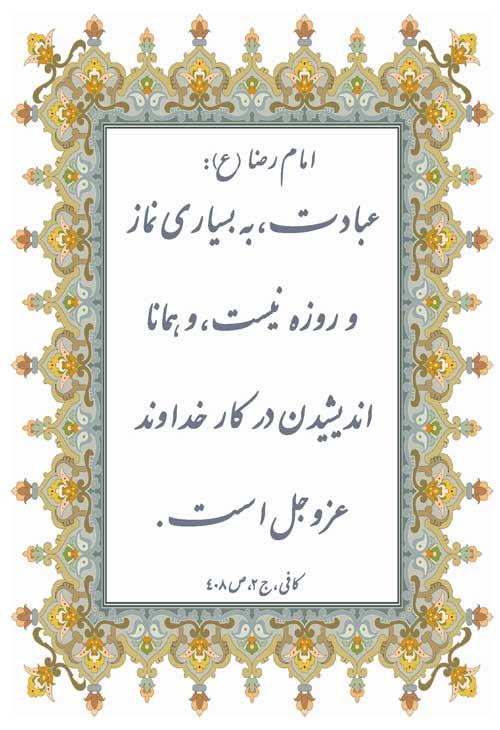 امام رضا (ع):
عبادت، به بسیاری نماز
و روزه نیست، و همانا
اندیشیدن در کار خداوند
عزوجل است.
کافی، ج ۲، ص ۴۰۸